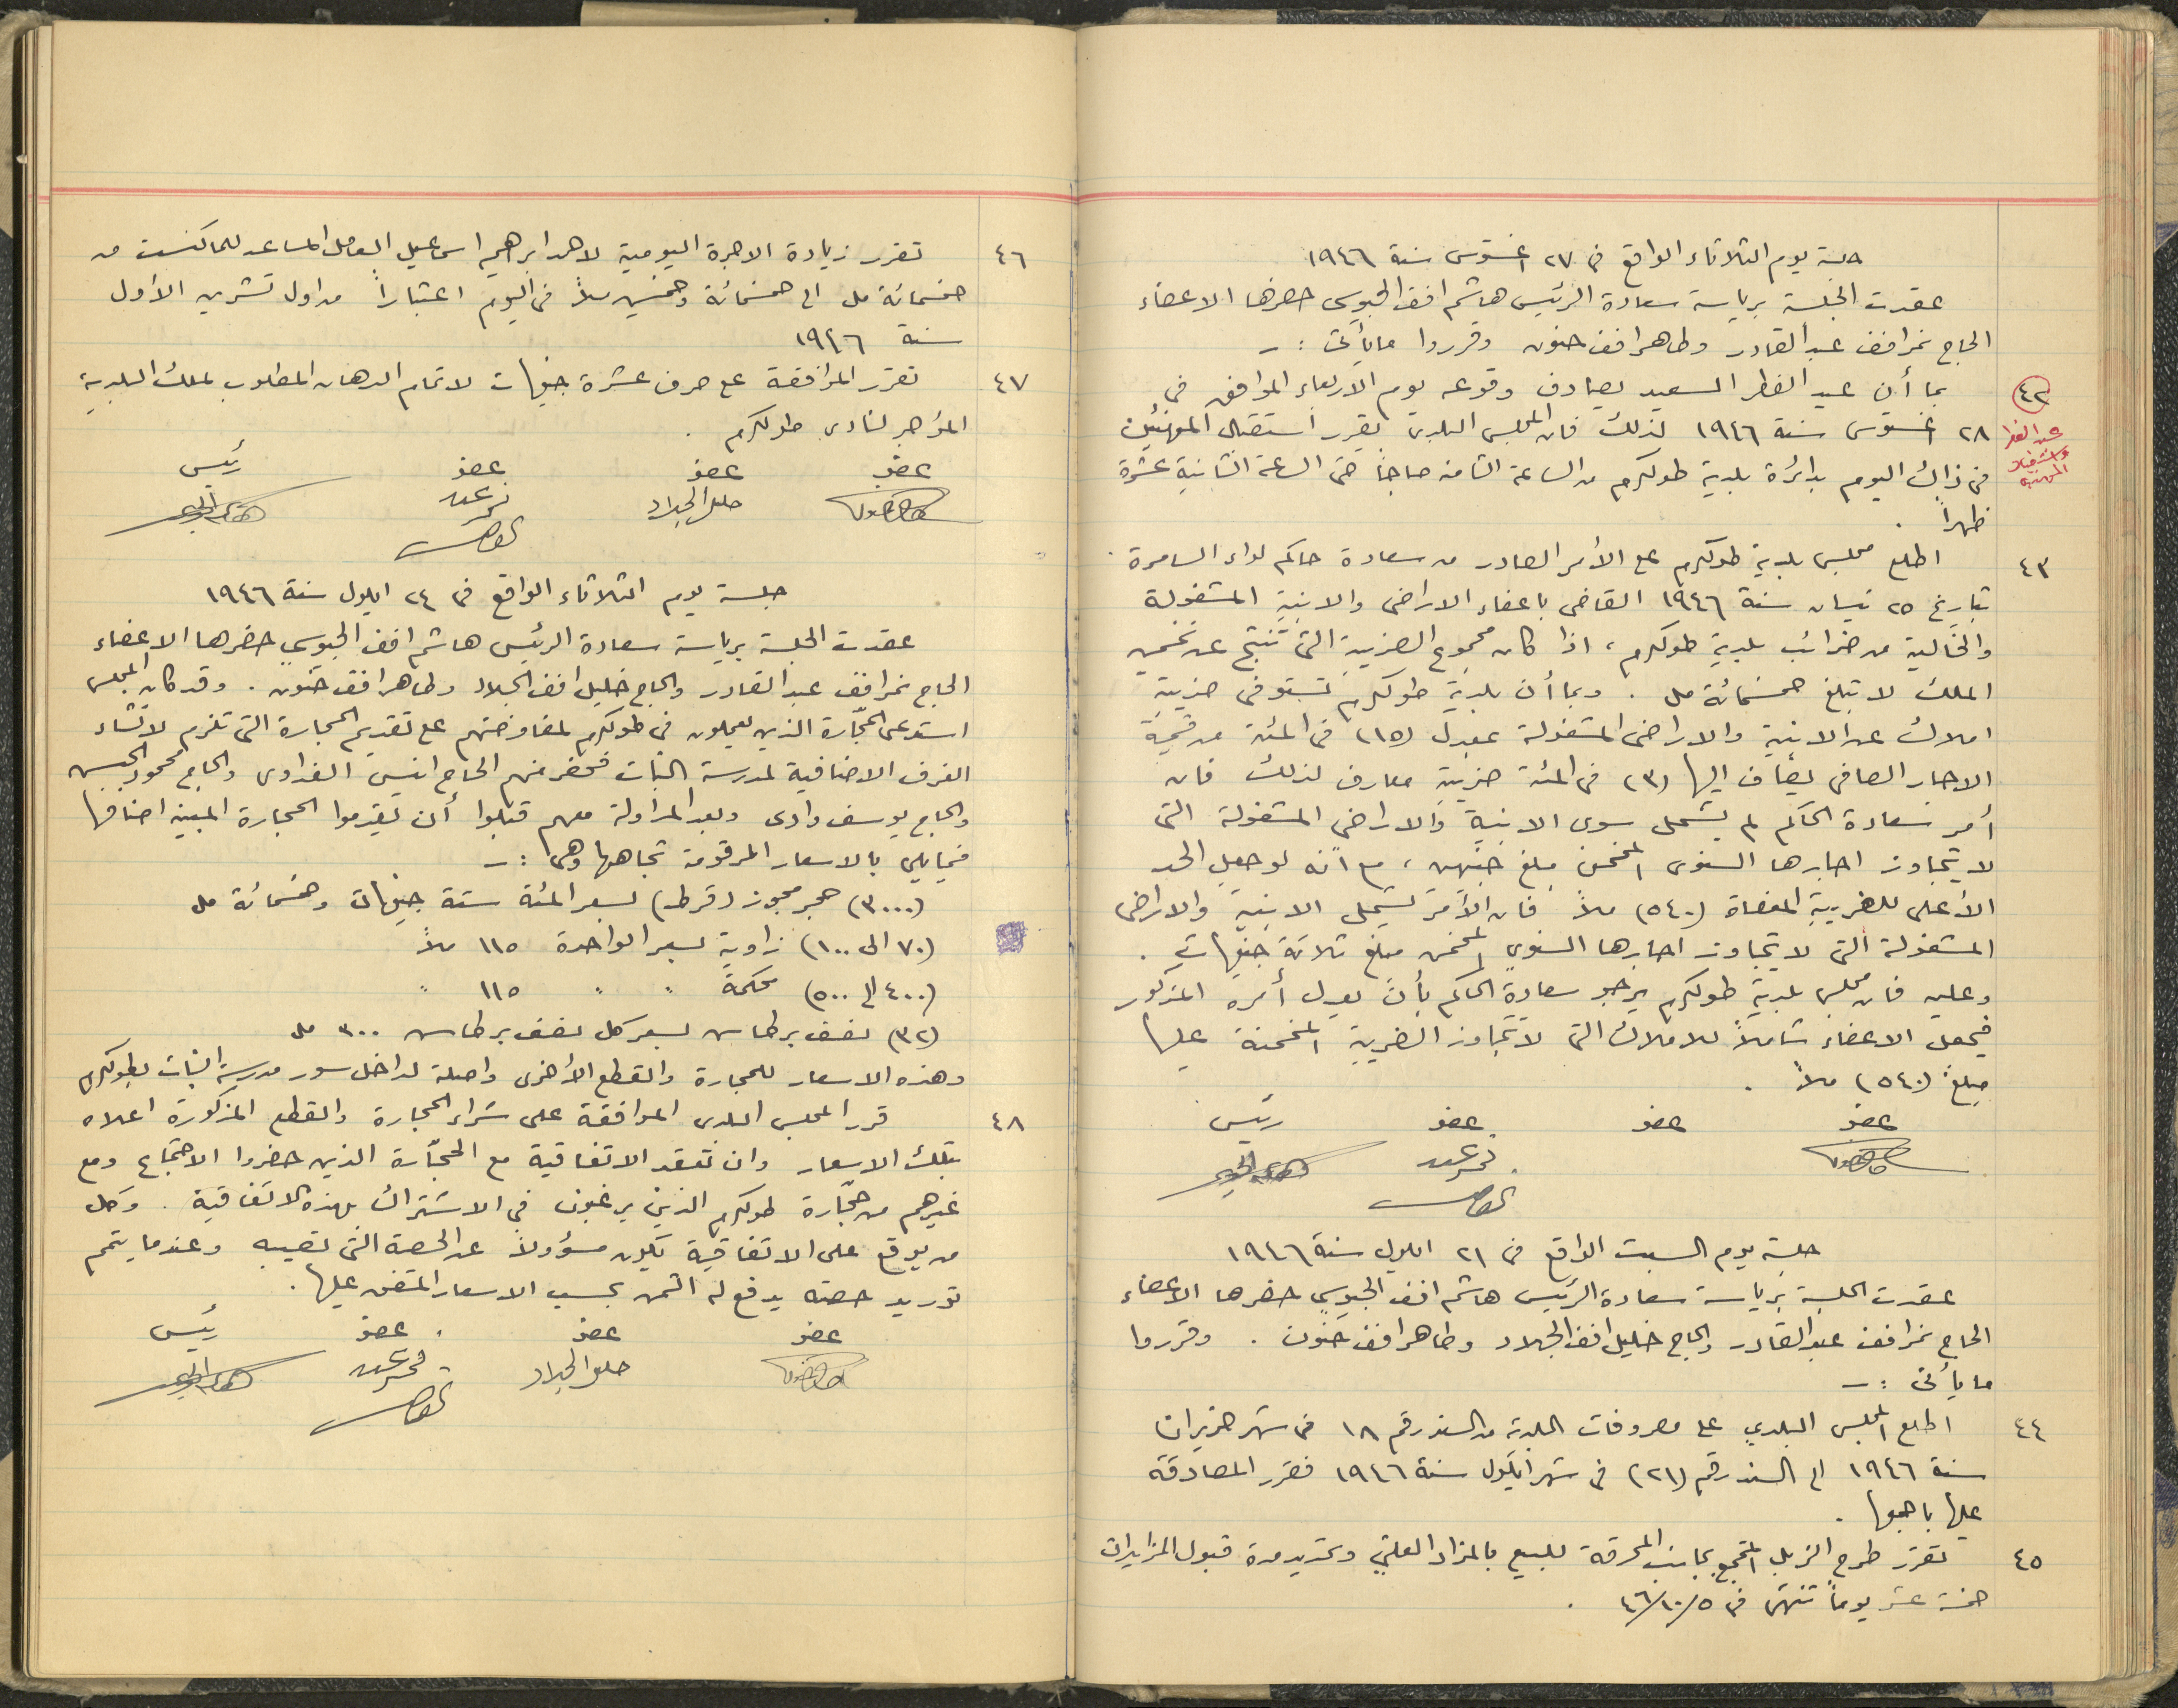 جلسة يوم الثلاثاء الواقع في ٢٧ اغستوس سنة ١٩٤٦
عقدت الجلسة برياسة سعادة الرئيس هاشم افندي الجيوسي حضرها الاعضاء
الحاج نمر افندي عبد القادر وطاهر افندي حنون وقرروا ما يأتي :ـ
٤٢ بما أن عيد الفطر السعيد يصادف وقوعه يوم الاربعاء الموافق في
عيد الفطر واستقبال المهنئين
٢٨ اغستوس سنة ١٩٤٦ لذلك فان المجلس البلدي يقرر استقبال المهنئين
في ذلك اليوم بدائرة بلدية طولكرم من الساعة الثامنة صباحاً حتى الساعة الثانية عشرة
ظهراً .
٤٣ اطلع مجلس بلدية طولكرم على الأمر الصادر من سعادة حاكم لواء السامرة
بتاريخ ٢٥ نيسان سنة ١٩٤٦ القاضي باعفاء الاراضي والابنية المشغولة
والخالية من ضرائب بلدية طولكرم ، اذا كان مجموع الضريبة التي تنتج عن تخمين
الملك لا تبلغ خمسمائة مل . وبما أن بلدية طولكرم تستوفي ضريبة
املاك عن الابنية والاراضي المشغولة بمعدل (١٥) في المئة من قيمة
الايجار الصافي يضاف اليها (٣) في المئة ضريبة معارف لذلك فان
أمر سعادة الحاكم لم يشمل سوى الابنية والاراضي المشغولة التي
لا يتجاوز ايجارها السنوي المخمن مبلغ جنيهين ، مع انه لو جعل الحد
الأعلى للضريبة المعفاة (٥٤٠) ملاً فان الأمر يشمل الابنية والاراضي
المشغولة التي لا يتجاوز ايجارها السنوي المخمن مبلغ ثلاثة جنيهات .
وعليه فان مجلس بلدية طولكرم يرجو سعادة الحاكم بأن يعدل أمره المذكور
فيجعل الاعفاء شاملاً للاملاك التي لا تتجاوز الضريبة المخمنة عليها
مبلغ (٥٤٠) ملاً .
عضو عضو عضو رئيس
نمر عبد القادر
جلسة يوم السبت الواقع في ٢١ ايلول سنة ١٩٤٦
عقدت الجلسة برياسة سعادة الرئيس هاشم افندي الجيوسي حضرها الاعضاء
الحاج نمر افندي عبد القادر والحاج خليل افندي الجلاد وطاهر افندي حنون . وقرروا
ما يأتي :ـ
٤٤ اطلع المجلس البلدي على مصروفات البلدية من السند رقم ١٨ في شهر حزيران
سنة ١٩٤٦ الى السند رقم (٢١) في شهر ايلول سنة ١٩٤٦ فقرر المصادقة
عليها باجمعها .
٤٥ تقرر طرح الزبل المتجمع بجانب المحرقة للبيع بالمزاد العلني وتحديد مدة قبول المزايدات
خمسة عشر يوماً تنتهي في ٤٦/١٠/٥ .
٤٦ تقرر زيادة الاجرة اليومية لاحمد ابرهيم اسماعيل العامل المساعد للماكنست من
خمسمائة مل الى خمسمائة وخمسين ملاً في اليوم اعتباراً من اول تشرين الاول
سنة ١٩٤٦
٤٧ تقرر الموافقة على صرف عشرة جنيهات لاتمام الدهان المطلوب لملك البلدية
المؤجر لنادي طولكرم .
عضو عضو عضو رئيس
خليل الجلاد نمر عبد القادر
جلسة يوم الثلاثاء الواقع في ٢٤ ايلول سنة ١٩٤٦
عقدت الجلسة برياسة سعادة الرئيس هاشم افندي الجيوسي حضرها الاعضاء
الحاج نمر افندي عبد القادر والحاج خليل افندي الجلاد وطاهر افندي حنون . وقد كان المجلس
استدعى الحجّارة الذين يعملون في طولكرم لمفاوضتهم على تقديم الحجارة التي تلزم لانشاء
الغرف الاضافية لمدرسة البنات فحضر منهم الحاج انيس والحاج محمود
والحاج يوسف وادي وبعد المداولة معهم قبلوا أن يقدموا الحجارة المبينة اصنافها
فيما يلي بالاسعار المرقومة تجاهها وهي :ـ
(٣٠٠٠) حجر مجوز (قرط) بسعر المئة ستة جنيهات وخمسمائة مل
(٧٠ الى ١٠٠) زاوية بسعر الواحدة ١١٥ ملاً
(٤٠٠ الى ٥٠٠) محكمة " " ١١٥ "
(٣٢) نصف برطاس بسعر كل نصف برطاس ٣٠٠ مل
وهذه الاسعار للحجارة والقطع الأخرى واصلة لداخل سور مدرسة البنات بطولكرم
٤٨ قرر المجلس البلدي الموافقة على شراء الحجارة والقطع المذكورة اعلاه
بتلك الاسعار وان تعقد الاتفاقية مع الحجّارة الذين حضروا الاجتماع ومع
غيرهم من حجّارة طولكرم الذين يرغبون في الاشتراك بهذه الاتفاقية . وكل
من يوقع على الاتفاقية يكون مسؤولاً عن الحصة التي تصيبه وعندما يتمم
توريد حصته يدفع له الثمن بحسب الاسعار المتفق عليها .
عضو عضو عضو رئيس
خليل الجلاد نمر عبد القادر